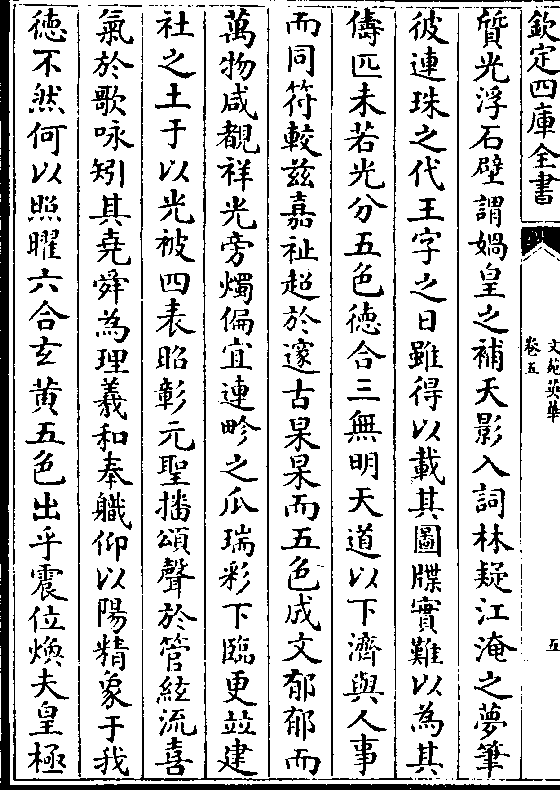 欽定四庫全書
文苑英華
卷五
五
質光浮石壁謂媧皇之補天影入詞林疑江淹之夢筆
彼連珠之代王字之日雖得以載其圖牒實難以為其
儔匹未若光分五色徳合三無明天道以下濟與人事
而同符較兹嘉祉超於邃古杲杲而五色成文郁郁而
萬物咸覩祥光旁燭偏宜連畛之瓜瑞彩下臨更竝建
社之土于以光被四表昭彰元聖播頌聲於管絃流喜
氣於歌咏矧其堯舜為理羲和奉職仰以陽精象于我
徳不然何以照曜六合玄黄五色出乎震位煥夫皇極